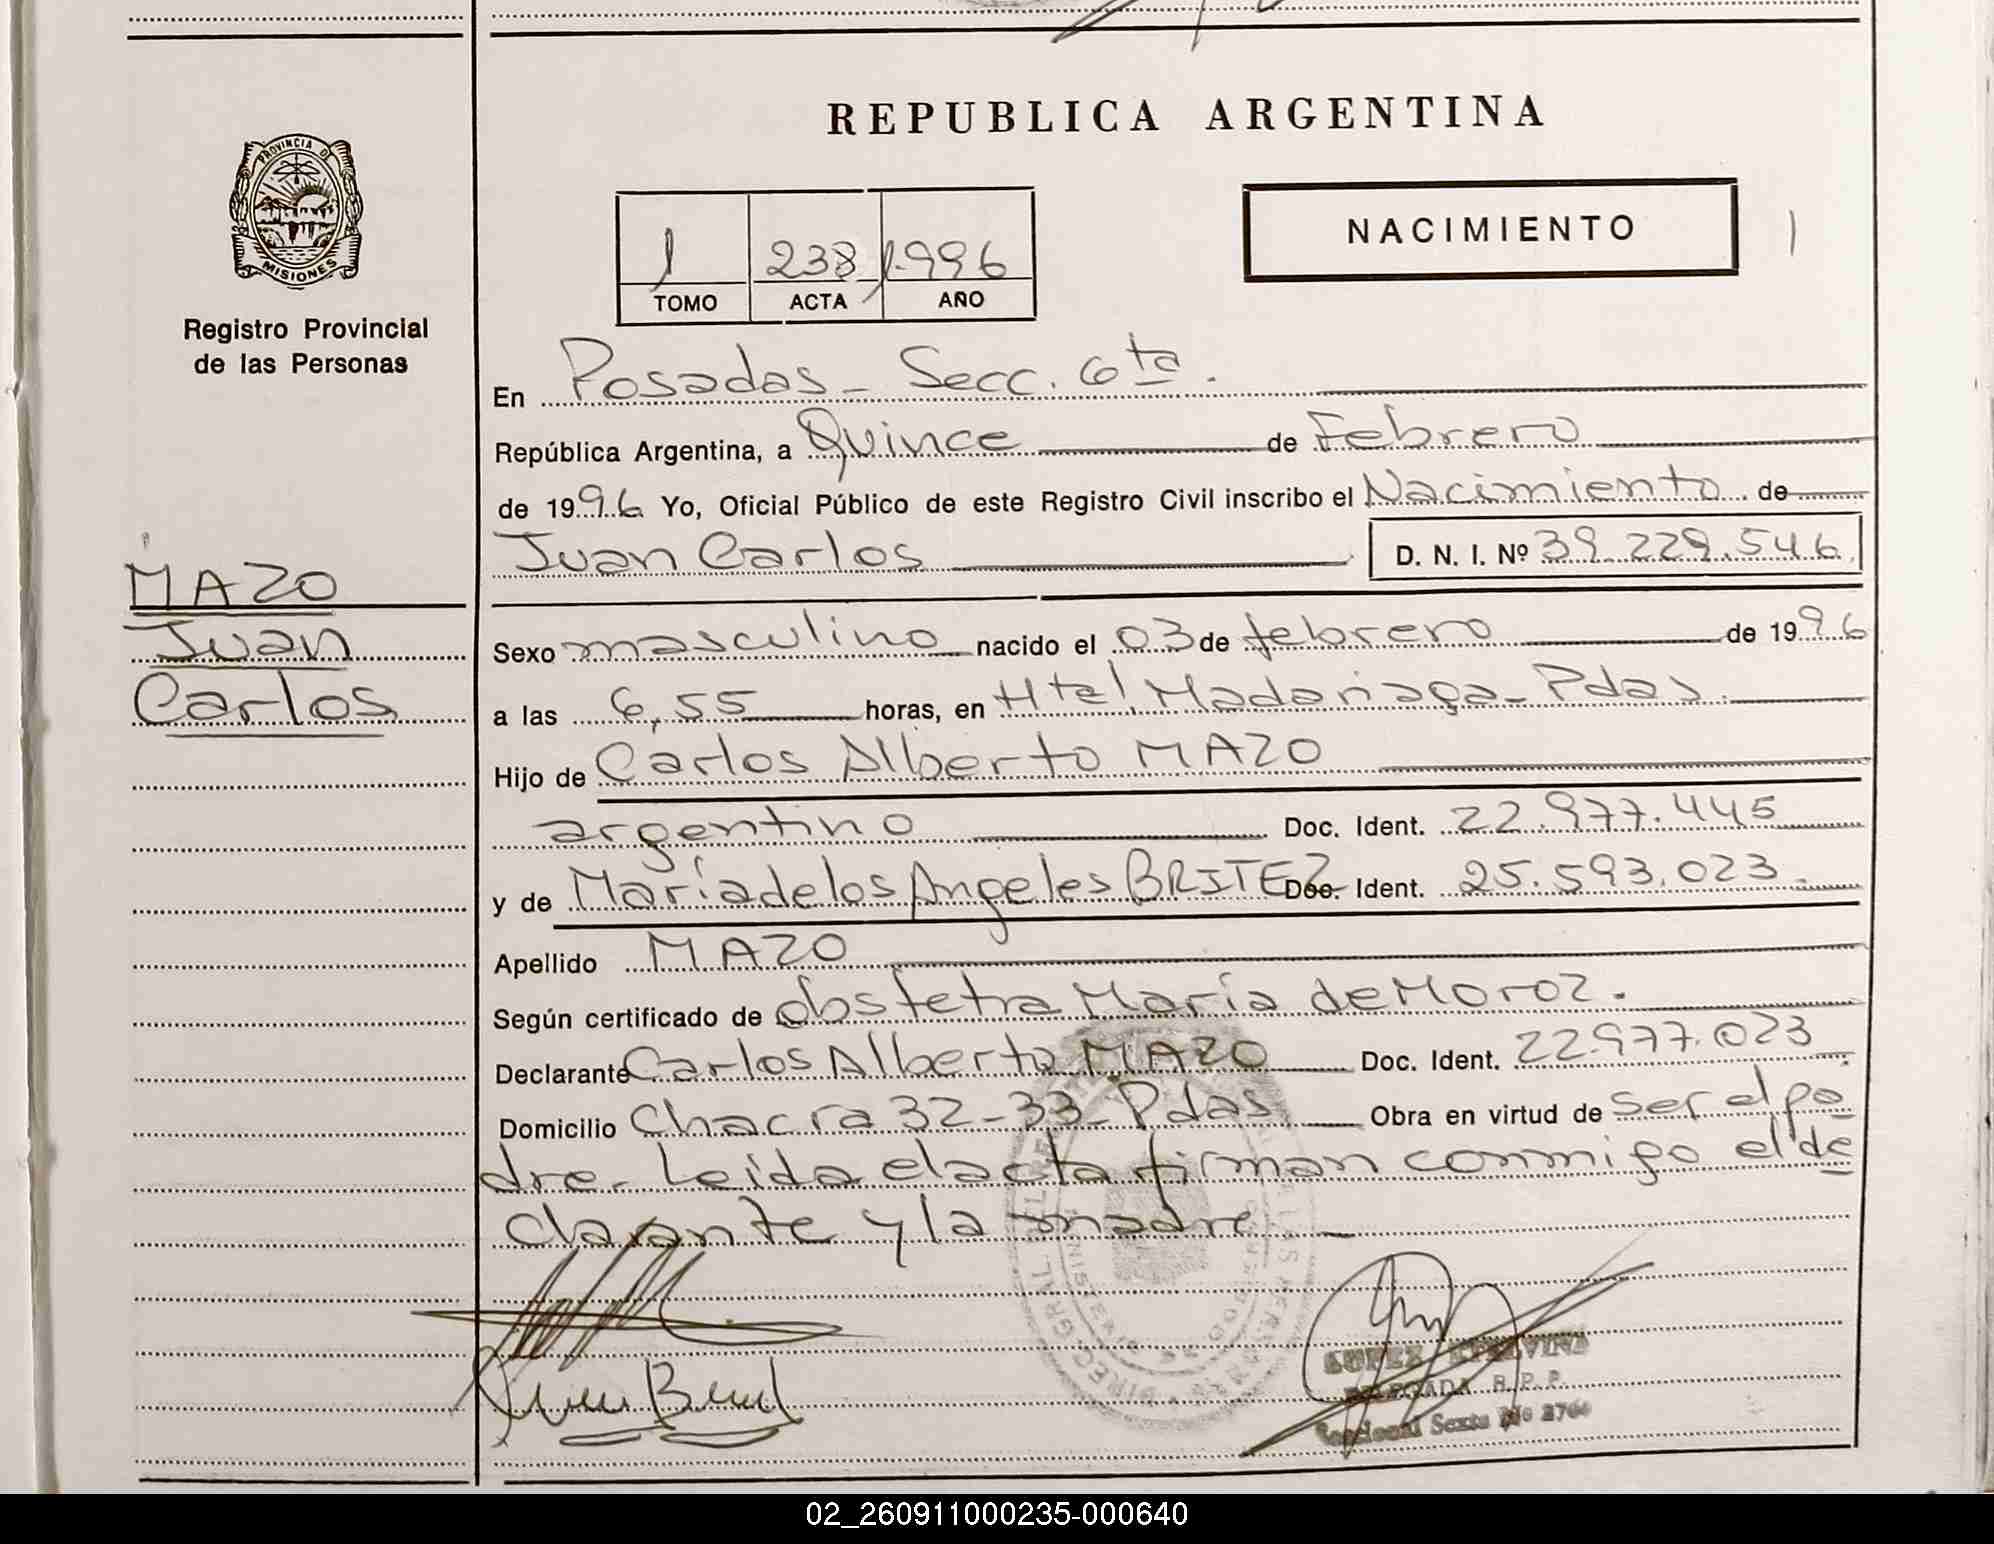 REPUBLICA ARGENTINA
PROVINCIA DE
MISIONES
Registro Provincial
de las Personas
NACIMIENTO
1 238 1.996
TOMO ACTA AÑO
En Posadas - Secc. 6ta.
República Argentina, a Quince de Febrero
de 1996 Yo, Oficial Público de este Registro Civil inscribo el Nacimiento de
Juan Carlos D. N. I. Nº 39.229.546
MAZO
Juan
Carlos
Sexo masculino nacido el 03 de febrero de 1996
a las 6,55 horas, en Htal. Madariaga - Pdas.
Hijo de Carlos Alberto MAZO
argentino Doc. Ident. 22.977.445
y de María de los Angeles BRITEZ Doc. Ident. 25.593.023
Apellido MAZO
Según certificado de obstetra María de Moroz.
Declarante Carlos Alberto MAZO Doc. Ident. 22.977.023
Domicilio Chacra 32-33- Pdas. Obra en virtud de ser el pa
dre. Leída el acta firman conmigo el de
clarante y la madre
DELEGADA R.P.P.
Seccional Sexta
02_260911000235-000640